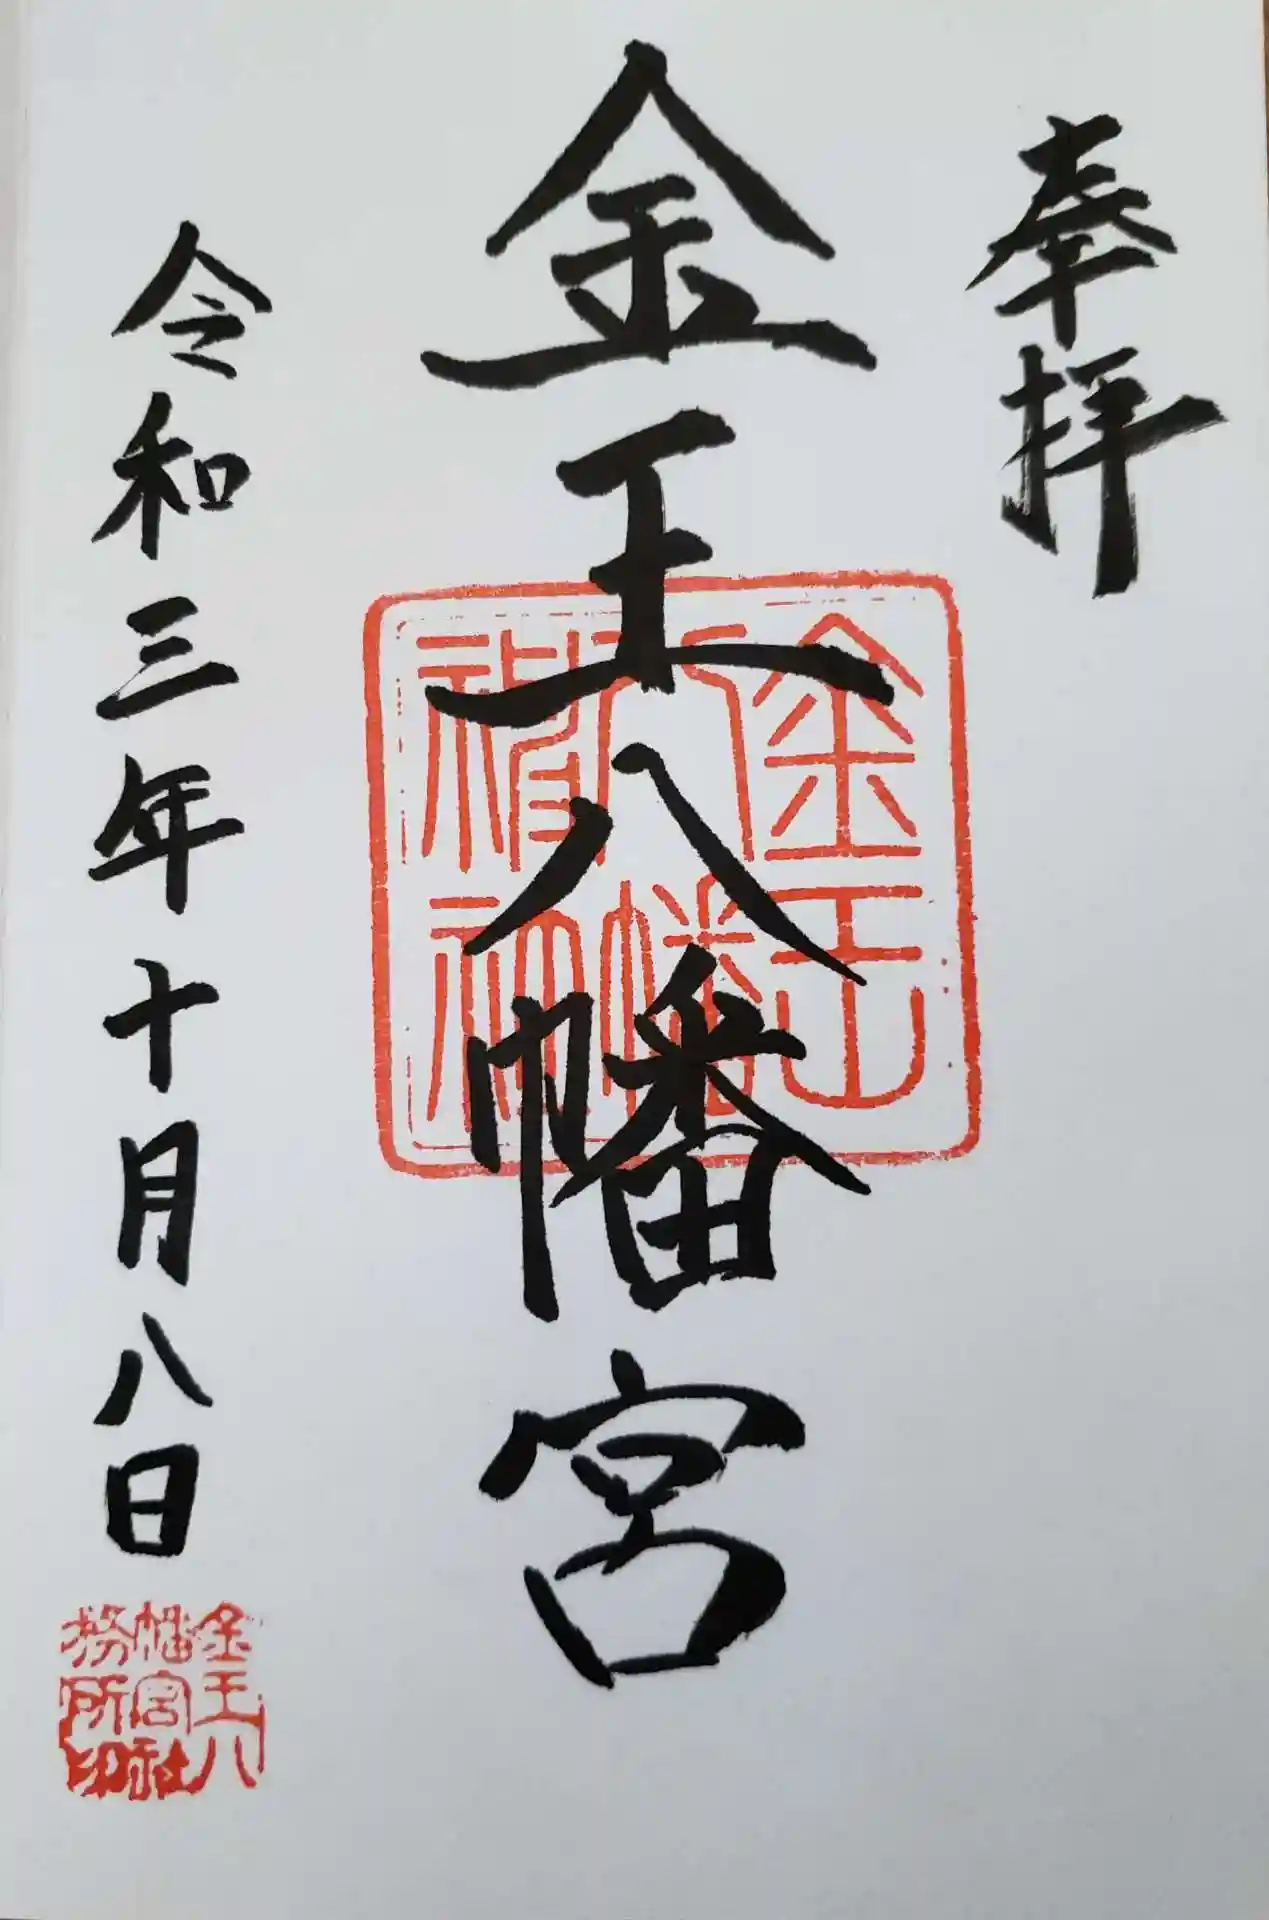 奉拝
金王八幡宮
令和三年十月八日
金王八
幡宮社
務所印